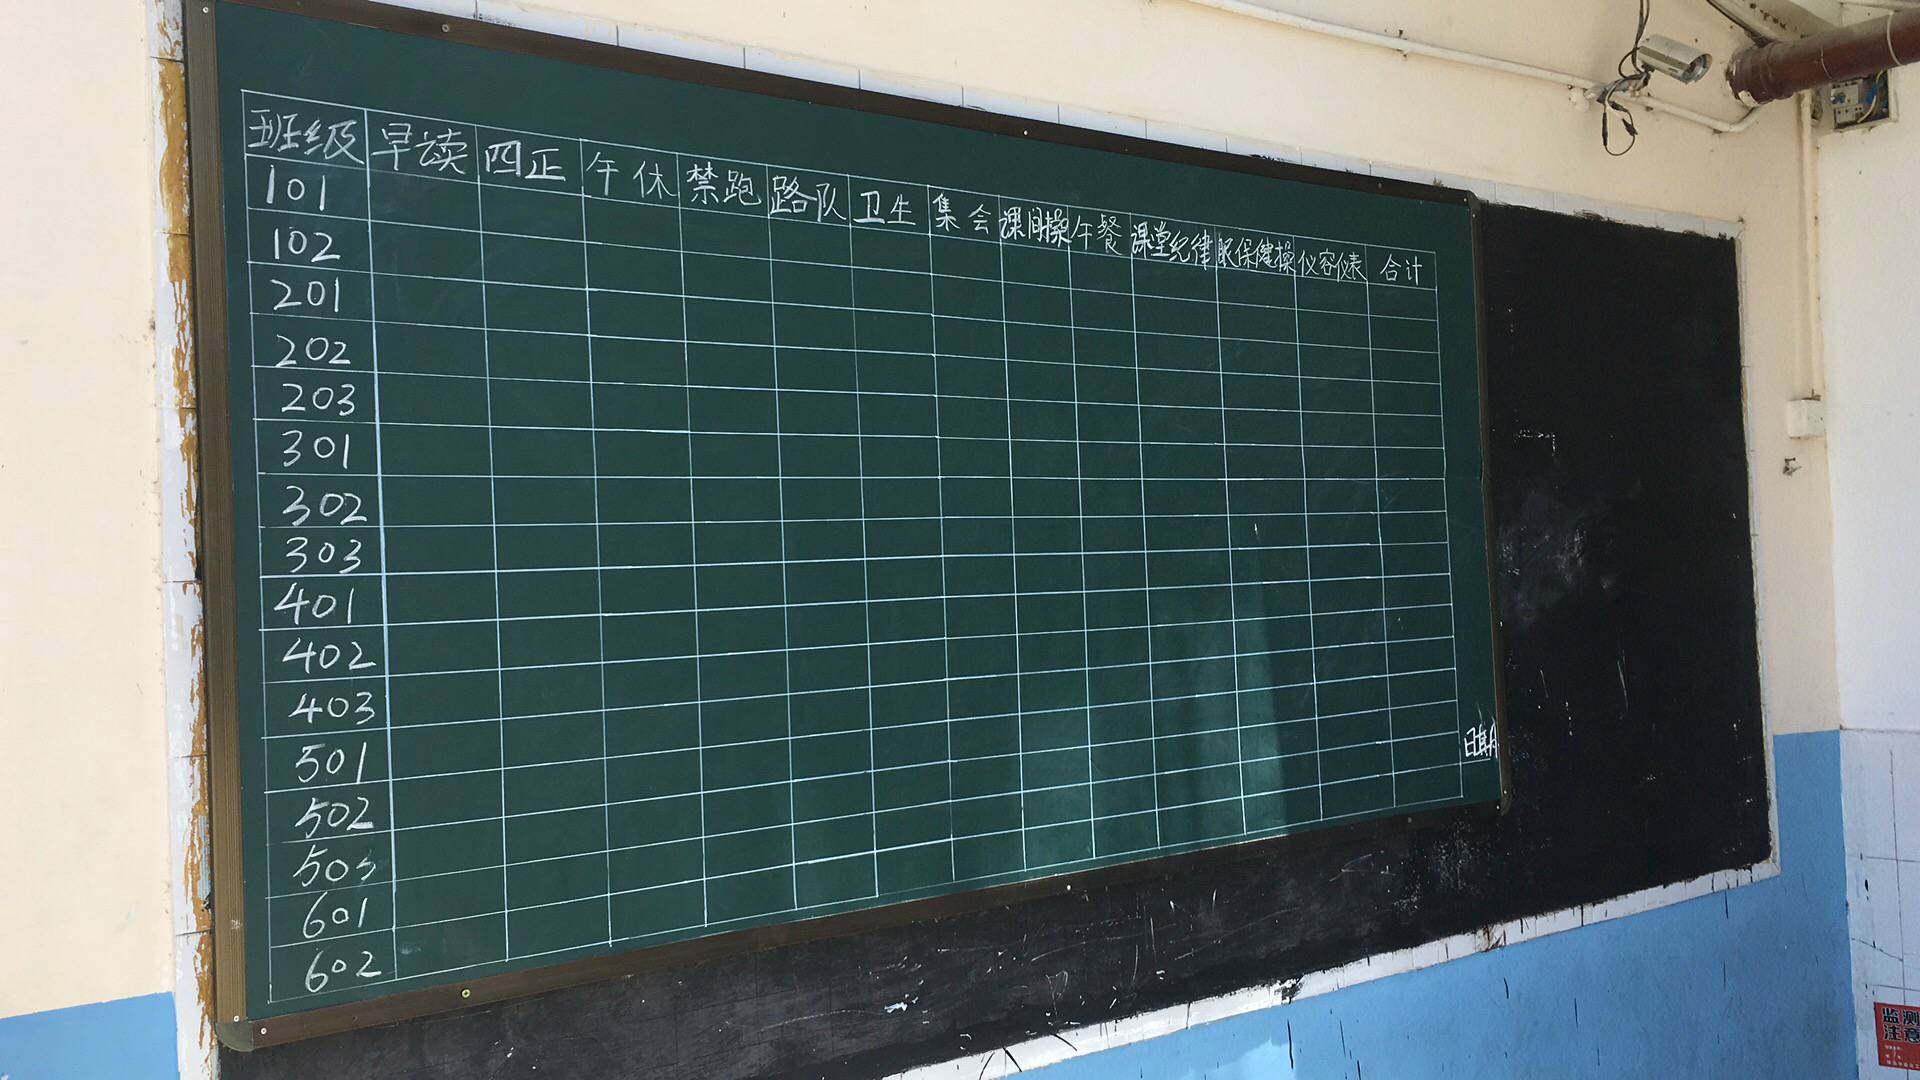 班级 早读 四正 午休 禁跑 路队 卫生 集会 课间操 午餐 课堂纪律 眼保健操 仪容仪表 合计
101
102
201
202
203
301
302
303
401
402
403
501
502
503
601
602
日期
监测
注意